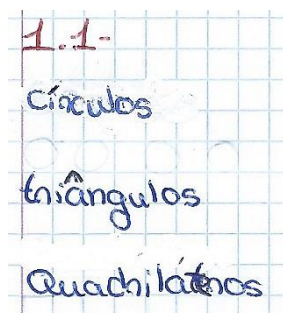 1.1-
Círculos
triângulos
Quadriláteros